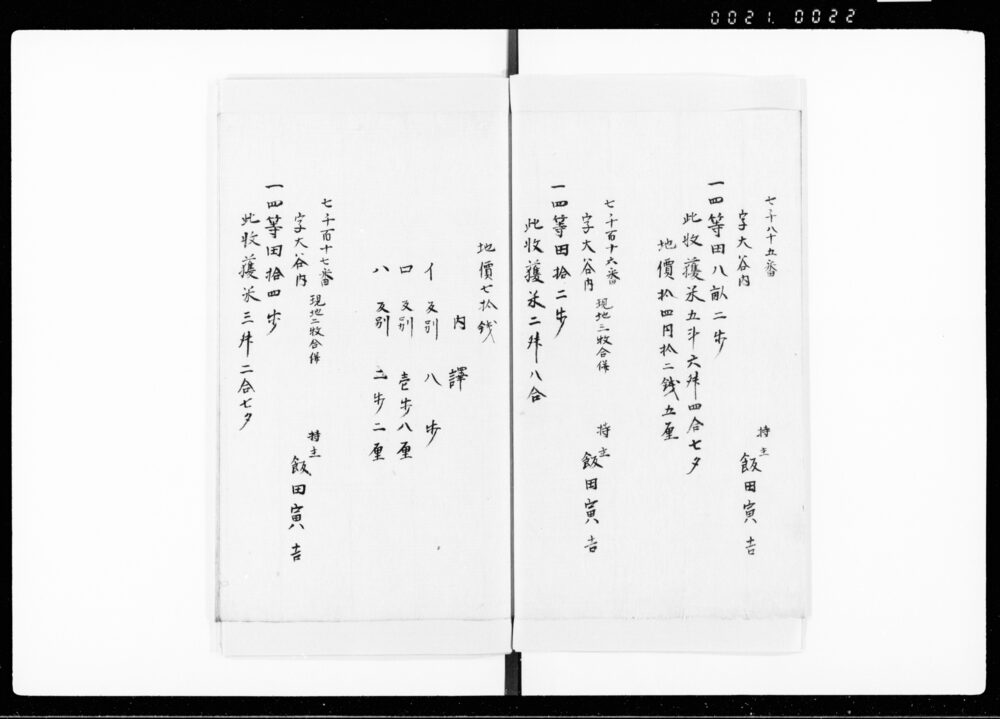 0021. 0022
七千八十五番
字大谷内
持主 飯田寅吉
一四等田八畝二歩
此收獲米五斗六舛四合七夕
地價拾四円拾二錢五厘
七千百十六番 現地三牧合併
字大谷内
持主 飯田寅吉
一四等田拾二歩
此收獲米二舛八合
地價七拾錢
内譯
イ 反別 八歩
ロ 反別 壱歩八厘
ハ 反別 二歩二厘
七千百十七番 現地二牧合併
字大谷内
持主 飯田寅吉
一四等田拾四歩
此收獲米三舛二合七夕